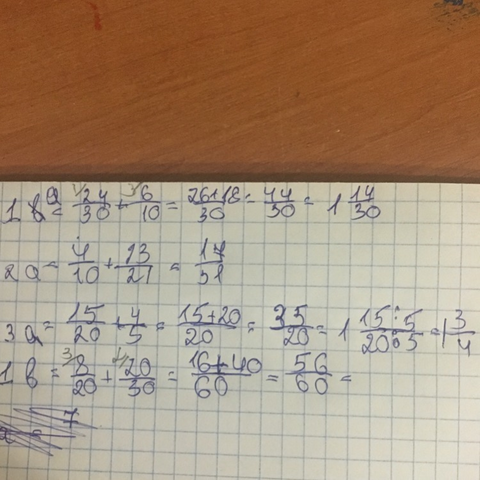 1 a = 24/30 + 6/10 = 26+18/30 = 44/30 = 1 14/30
2 a = 4/10 + 13/21 = 17/31
3 a = 15/20 + 4/5 = 15+20/20 = 35/20 = 1 15:5/20:5 = 1 3/4
1 b = 8/20 + 20/30 = 16+40/60 = 56/60 =